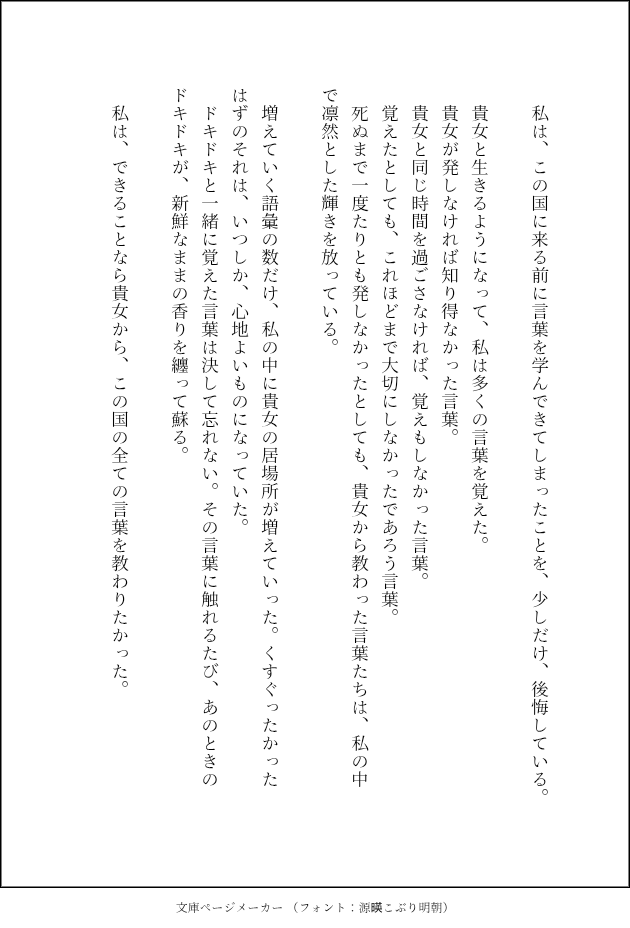 私は、この国に来る前に言葉を学んできてしまったことを、少しだけ、後悔している。
貴女と生きるようになって、私は多くの言葉を覚えた。
貴女が発しなければ知り得なかった言葉。
貴女と同じ時間を過ごさなければ、覚えもしなかった言葉。
覚えたとしても、これほどまで大切にしなかったであろう言葉。
死ぬまで一度たりとも発しなかったとしても、貴女から教わった言葉たちは、私の中
で凛然とした輝きを放っている。
増えていく語彙の数だけ、私の中に貴女の居場所が増えていった。くすぐったかった
はずのそれは、いつしか、心地よいものになっていた。
ドキドキと一緒に覚えた言葉は決して忘れない。その言葉に触れるたび、あのときの
ドキドキが、新鮮なままの香りを纏って蘇る。
私は、できることなら貴女から、この国の全ての言葉を教わりたかった。
文庫ページメーカー（フォント：源暎こぶり明朝）